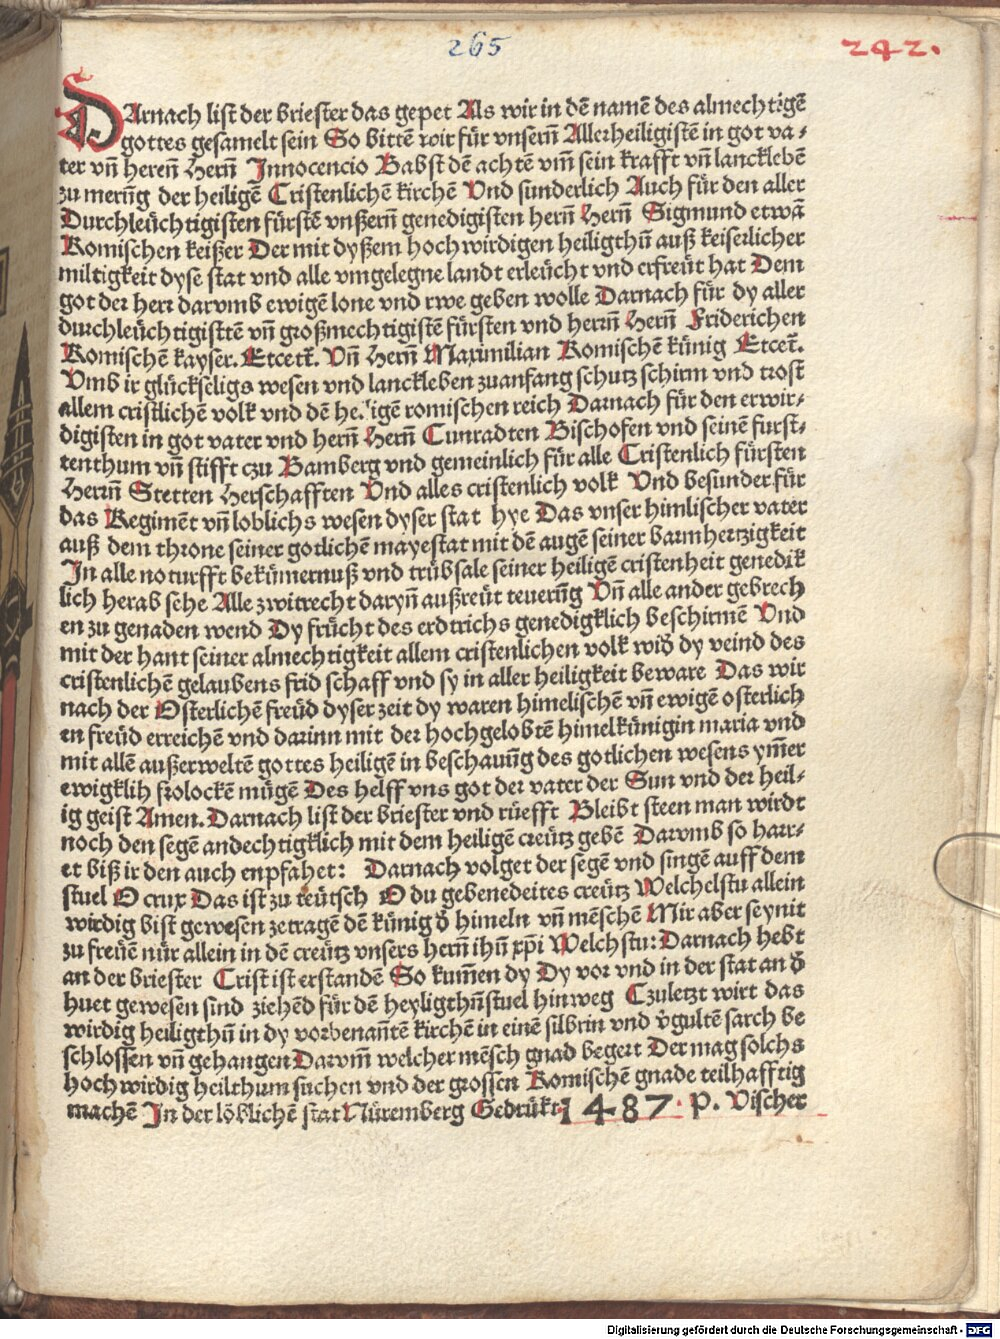 265
242.
DArnach list der briester das gepet Als wir in dē namē des almechtigē
gottes gesamelt sein So bittē wir für vnsern̄ Allerheiligistē in got va⸗
ter vn̄ heren̄ Hern̄ Innocencio Babst dē achtē vm̄ sein krafft vn̄ lancklebē
zu merūg der heiligē Cristenlichē kirchē Vnd sunderlich Auch für den aller
Durchleüchtigisten fürstē vnßern̄ genedigisten hern̄ Hern̄ Sigmund etwā
Romischen keißer Der mit dyßem hochwirdigen heiligthū auß keiserlicher
miltigkeit dyse stat vnd alle vmgelegne landt erleücht vnd erfreüt hat Dem
got der herr darvmb ewigē lone vnd rwe geben wolle Darnach für dy aller
durchleüchtigisttē vn̄ großmechtigistē fürsten vnd herrn̄ Hern̄ Friderichen
Romischē kayser. Etcetē. Vn̄ Hern̄ Maximilian Romischē künig Etcet̄.
Vmb ir glückseligs wesen vnd lanckleben zuanfang schutz schirm vnd trost
allem cristlichē volk vnd dē heiligē romischen reich Darnach für den erwir⸗
digisten in got vater vnd hern̄ Hern̄ Cunradten Bischofen vnd seinē furst⸗
tenthum vn̄ stifft czu Bamberg vnd gemeinlich für alle Cristenlich fürsten
Herrn̄ Stetten Herschafften Vnd alles cristenlich volk Vnd besunder für
das Regimēt vn̄ loblichs wesen dyser stat hye Das vnser himlischer vater
auß dem throne seiner gotlichē mayestat mit dē augē seiner barmhertzigkeit
In alle noturfft bekümernuß vnd trübsale seiner heiligē cristenheit genedik
lich herab sehe Alle zwitrecht daryn̄ außreüt teuerūg Vn̄ alle ander gebrech
en zu genaden wend Dy frücht des erdtrichs genedigklich beschirmē Vnd
mit der hant seiner almechtigkeit allem cristenlichen volk wid̄ dy veind des
cristenlichē gelaubens frid schaff vnd sy in aller heiligkeit beware Das wir
nach der Osterlichē freüd dyser zeit dy waren himelischē vn̄ ewigē osterlich
en freüd erreichē vnd darinn mit der hochgelobtē himelkünigin maria vnd
mit allē außerweltē gottes heiligē in beschauūg des gotlichen wesens ym̄er
ewigklih frolockē mügē Des helff vns got der vater der Sun vnd der heil⸗
ig geist Amen. Darnach list der briester vnd rüefft Bleibt steen man wirdt
noch den segē andechtigklich mit dem heiligē creütz gebē Darvmb so harr⸗
et biß ir den auch enpfahet: Darnach volget der segē vnd singē auff dem
stuel O crux Das ist zu teütsch O du gebenedeites creütz Welchelstu allein
wirdig bist gewesen zetragē dē künig d̄ himeln vn̄ mēschē Mir aber seynit
zu freüē nür allein in dē creütz vnsers hern̄ ihū xp̄i Welchstu: Darnach hebt
an der briester Crist ist erstandē So kum̄en dy Dy vor vnd in der stat an d̄
huet gewesen sind ziehēd für dē heyligthūstuel hinweg Czuletzt wirt das
wirdig heiligthū in dy vorbenan̄tē kirchē in einē silbrin vnd v̄gultē sarch be
schlossen vn̄ gehangen Darvm̄ welcher mēsch gnad begert Der mag solchs
hochwirdig heilthum suchen vnd der grossen Romischē gnade teilhafftig
machē In der löblichē stat Nüremberg Gedrükt 1487. P. Vischer
Digitalisierung gefördert durch die Deutsche Forschungsgemeinschaft - DFG